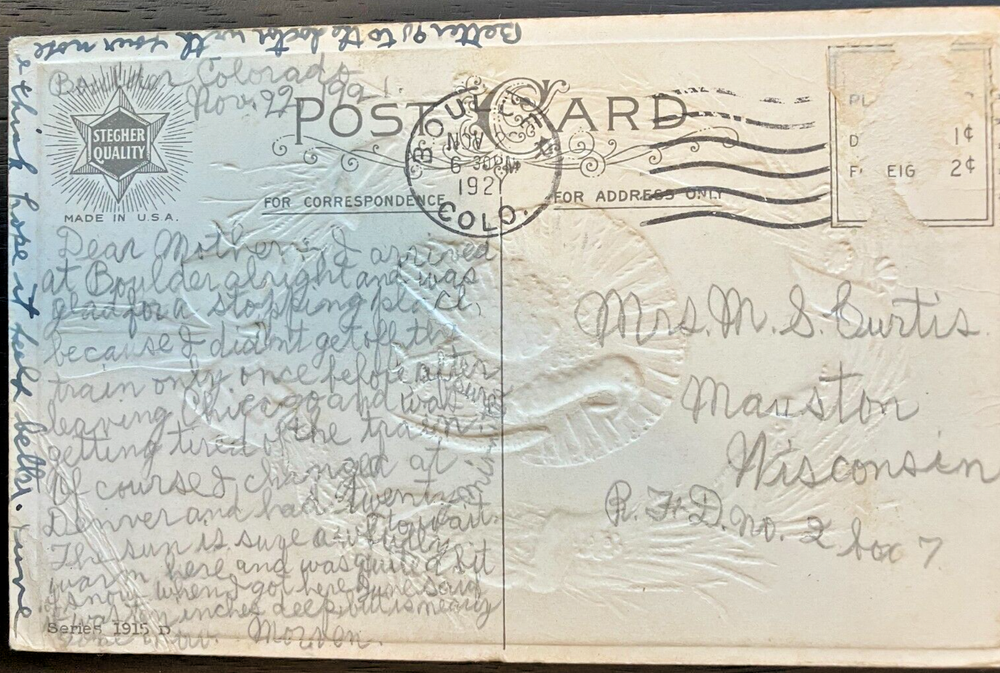 Better go to the doctor with your nose
& think hope it feels better. June
Boulder Colorado
Nov. 22 1921.
STEGHER
QUALITY
MADE IN U.S.A.
POST CARD
FOR CORRESPONDENCE
FOR ADDRESS ONLY
BOULDER
NOV
6-30PM
1921
COLO.
PL
D 1¢
F EIG 2¢
Dear Mother: I arrived
at Boulder alright and was
glad for a stopping place,
because I didn't get off the
train only once before after
leaving Chicago and was
getting tired of the train.
Of course I changed at
Denver and had twenty
to wait.
The sun is sure
warm here and was quite a bit
of snow when I got here. June said
it was ten inches deep but is nearly
gone now. Morvan.
Series 1915 D
Mrs. M. S. Curtis.
Mauston
Wisconsin
R.F.D. no. 2 box 7